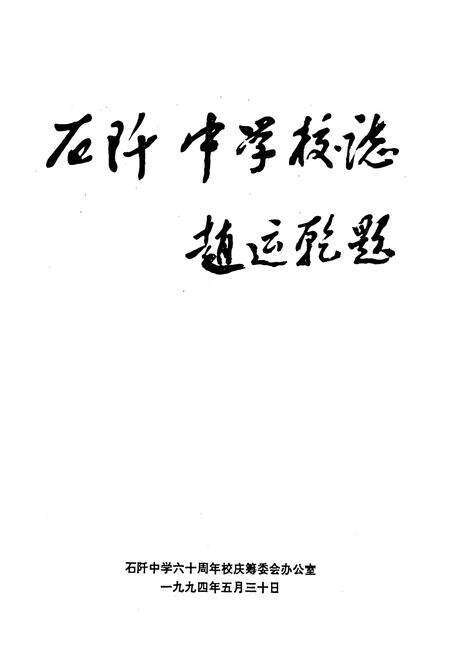 石阡中学校誌
赵运乾题
石阡中学六十周年校庆筹委会办公室
一九九四年五月三十日